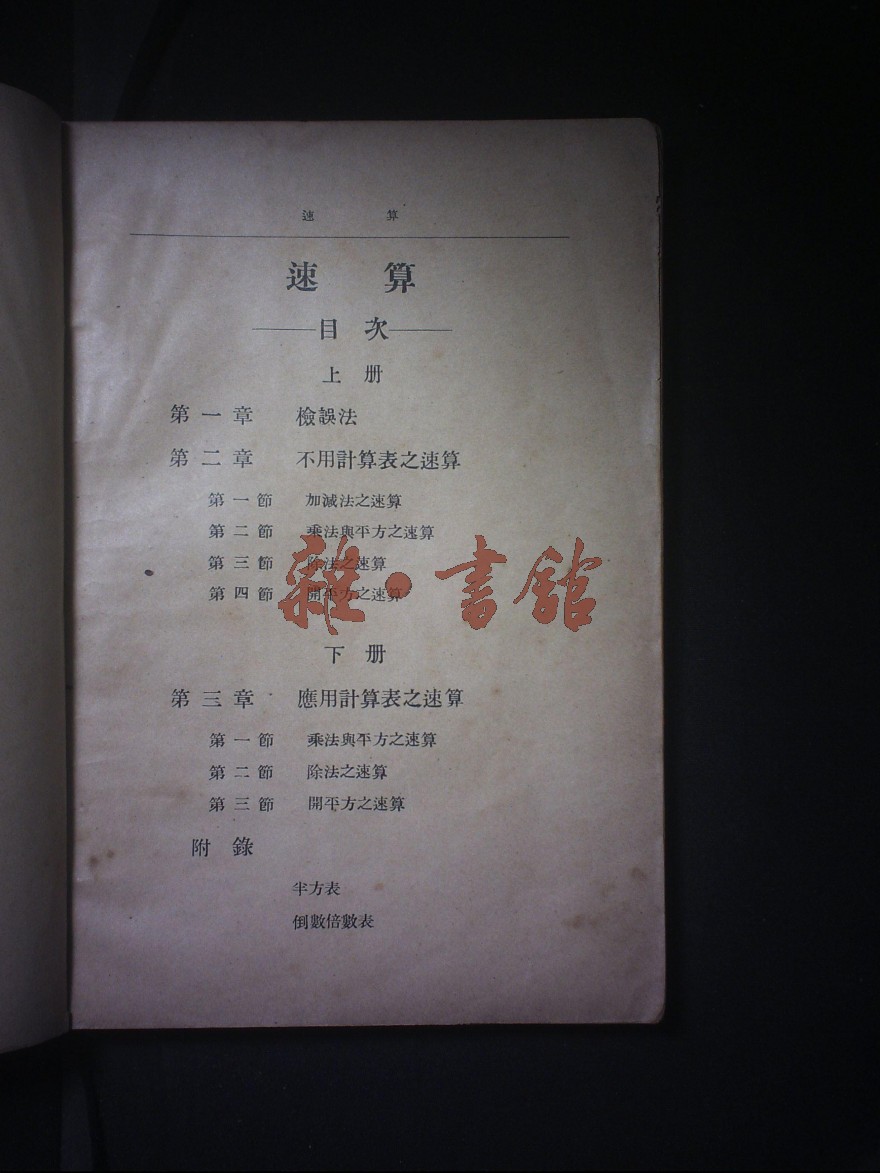 速算
速算
目次
上册
第一章 檢誤法
第二章 不用計算表之速算
第一節 加減法之速算
第二節 乘法與平方之速算
第三節 除法之速算
第四節 開平方之速算
雜·書館
下册
第三章 應用計算表之速算
第一節 乘法與平方之速算
第二節 除法之速算
第三節 開平方之速算
附錄
半方表
倒數倍數表